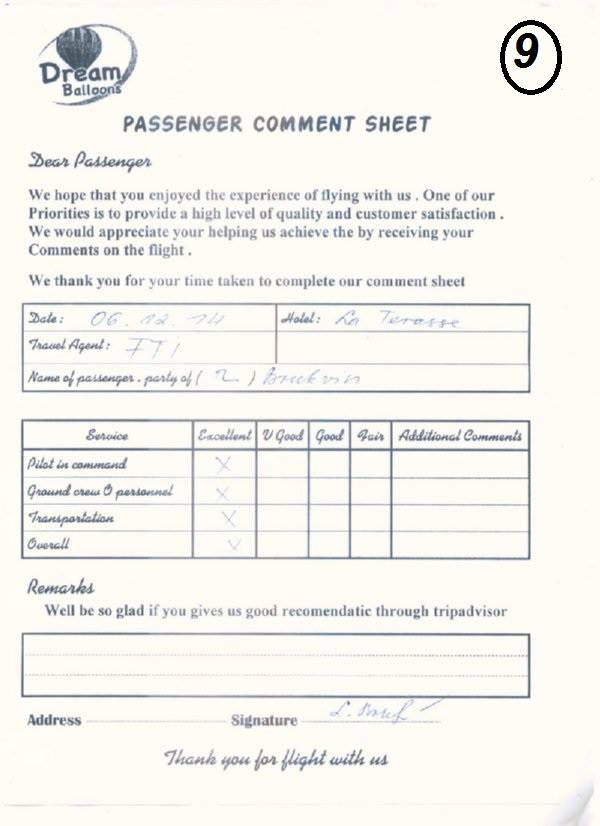 9
Dream
Balloons
PASSENGER COMMENT SHEET
Dear Passenger
We hope that you enjoyed the experience of flying with us . One of our
Priorities is to provide a high level of quality and customer satisfaction .
We would appreciate your helping us achieve the by receiving your
Comments on the flight .
We thank you for your time taken to complete our comment sheet
Date: 06.12.14 Hotel: La Terasse
Travel Agent: FTi
Name of passenger . party of ( 2 )
Service Excellent V Good Good Fair Additional Comments
Pilot in command X
Ground crew O personnel X
Transportation X
Overall X
Remarks
Well be so glad if you gives us good recomendatic through tripadvisor
Address Signature
Thank you for flight with us